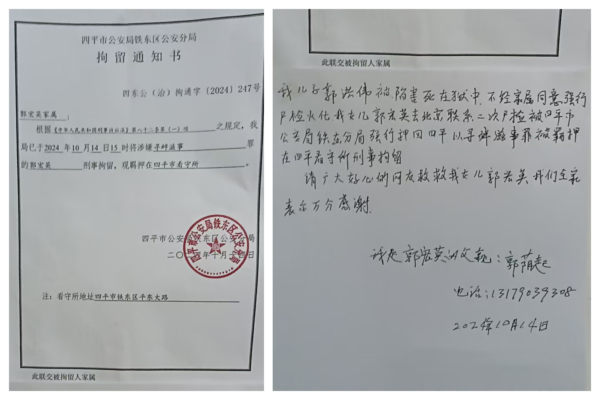 四平市公安局铁东区公安分局
拘留通知书
四东公（治）拘通字〔2024〕247号
郭宏英家属
根据《中华人民共和国刑事诉讼法》第八十二条第（一）项之规定，我
局已于2024年10月14日15时将涉嫌寻衅滋事罪
的郭宏英刑事拘留，现羁押在四平市看守所。
四平市公安局铁东区公安分局
二〇二四年十月十四日
四平市公安局铁东区公安分局
注：看守所地址四平市铁东区平东大路
此联交被拘留人家属
此联交被拘留人家属
我儿子郭洪伟被陷害死在狱中，不经家属同意强行
尸检火化我女儿郭宏英去北京联系二次尸检被四平市
公安局铁东分局强行押回四平以寻衅滋事罪被羁押
在四平看守所刑事拘留
请广大好心的网友救救我女儿郭宏英，我们全家
表示万分感谢
我是郭宏英的父亲：郭荫起
电话：13179039308
2024年10月14日